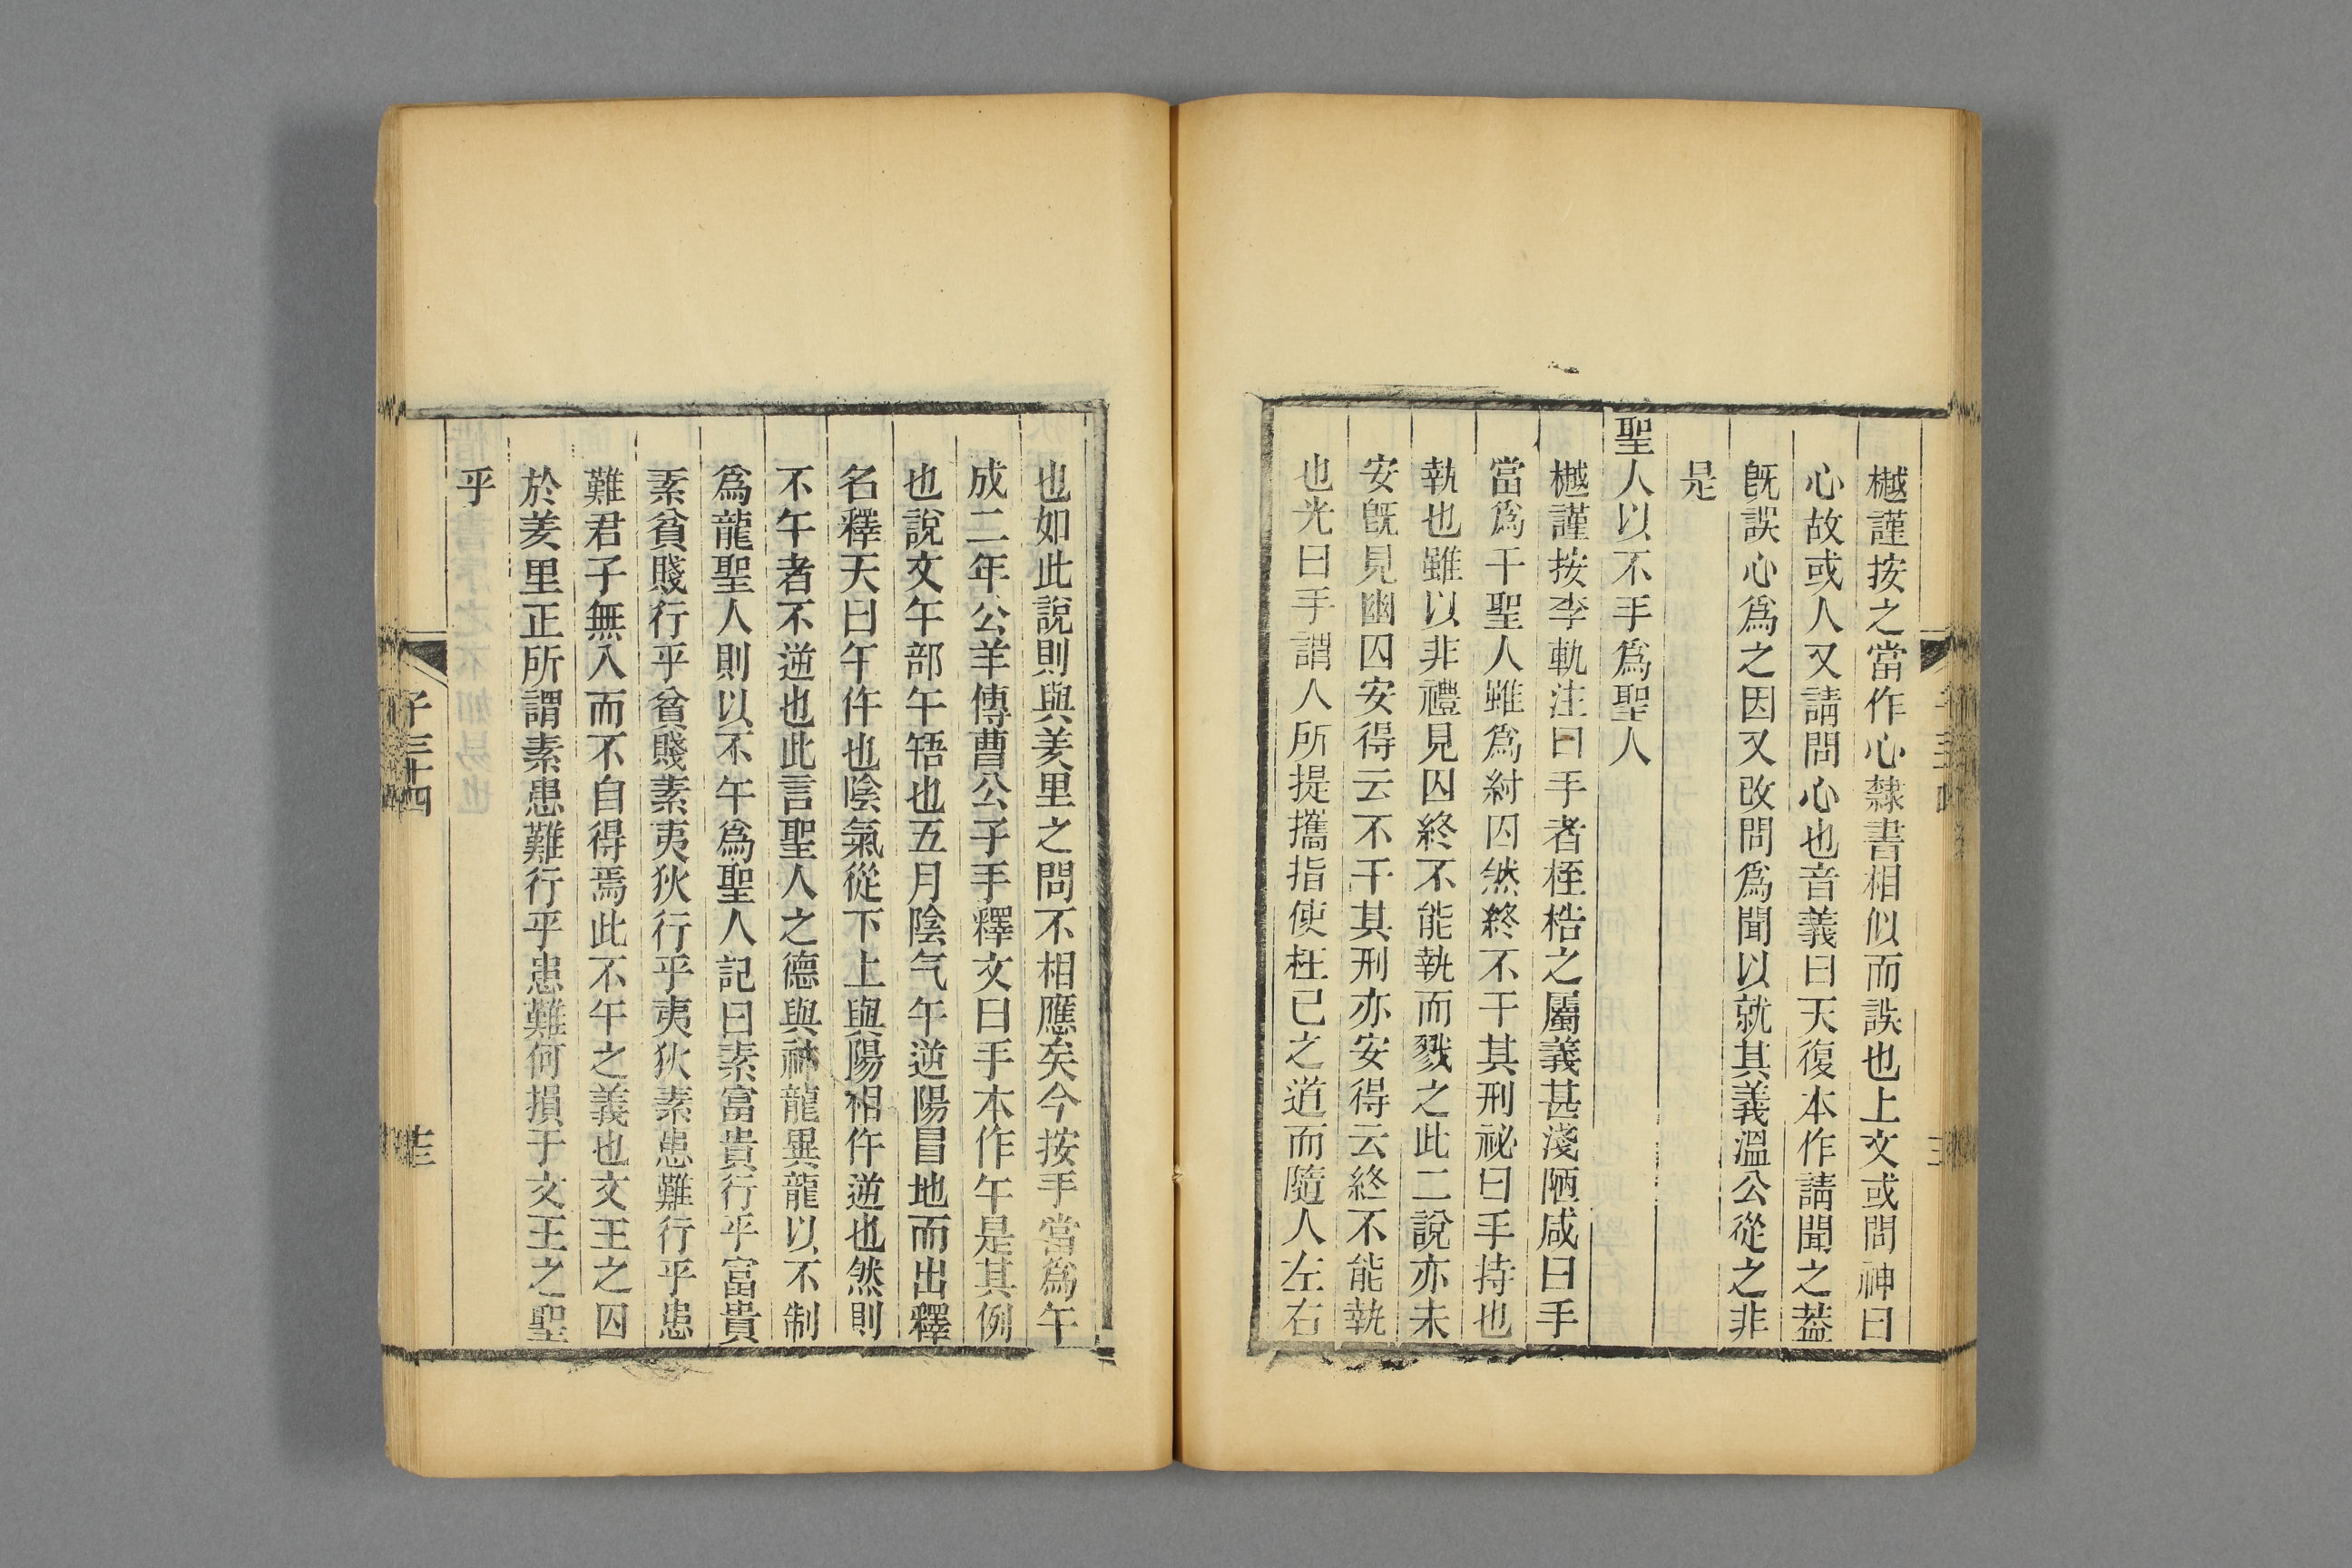 樾謹按之當作心隸書相似而誤也上文或問神曰
心故或人又請問心也音義曰天復本作請聞之葢
旣誤心爲之因又改問爲聞以就其義溫公從之非
是
聖人以不手爲聖人
樾謹按李軌注曰手者桎梏之屬義甚淺陋咸曰手
當爲干聖人雖爲紂囚然終不干其刑祕曰手持也
執也雖以非禮見囚終不能執而戮之此二說亦未
安旣見幽囚安得云不干其刑亦安得云終不能執
也光曰手謂人所提攜指使枉已之道而隨人左右
也如此說則與羑里之問不相應矣今按手當爲午
成二年公羊傳曹公子手釋文曰手本作午是其例
也說文午部午啎也五月陰气午逆陽冒地而出釋
名釋天曰午仵也陰氣從下上與陽相仵逆也然則
不午者不逆也此言聖人之德與神龍異龍以不制
爲龍聖人則以不午爲聖人記曰素富貴行乎富貴
素貧賤行乎貧賤素夷狄行乎夷狄素患難行乎患
難君子無入而不自得焉此不午之義也文王之囚
於羑里正所謂素患難行乎患難何損于文王之聖
乎
子三十四